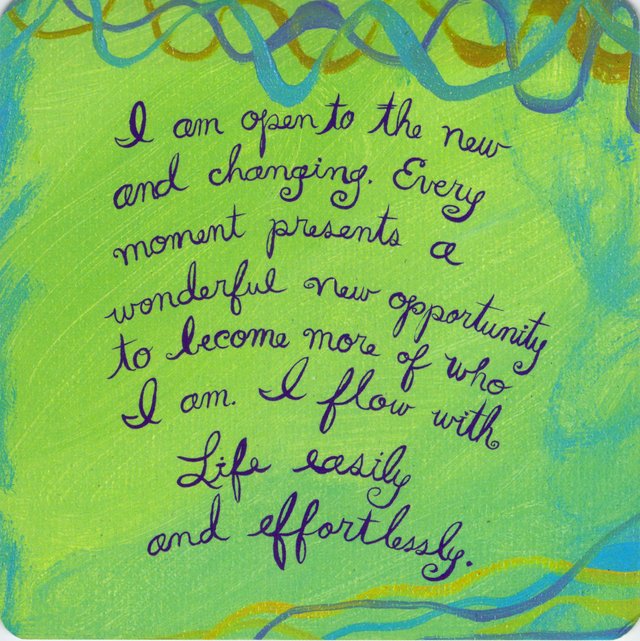 I am open to the new
and changing. Every
moment presents a
wonderful new opportunity
to become more of who
I am. I flow with
Life easily
and effortlessly.